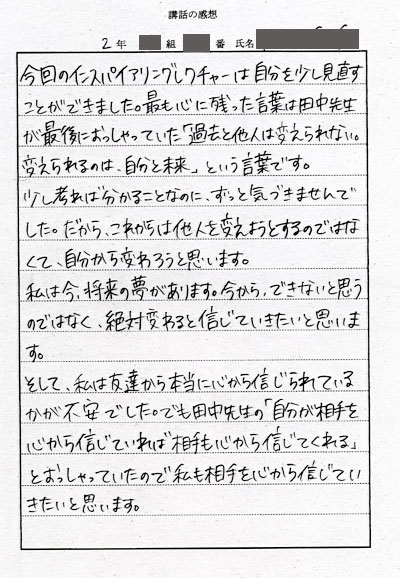 講話の感想
2年 組 番 氏名
今回のインスパイアリングレクチャーは自分を少し見直す
ことができました。最も心に残った言葉は田中先生
が最後におっしゃっていた「過去と他人は変えられない。
変えられるのは、自分と未来」という言葉です。
少し考れば分かることなのに、ずっと気づきませんで
した。だから、これからは他人を変えようとするのではな
くて、自分から変わろうと思います。
私は今、将来の夢があります。今から、できないと思う
のではなく、絶対変わると信じていきたいと思いま
す。
そして、私は友達から本当に心から信じられている
かが不安でした。でも田中先生の「自分が相手を
心から信じていれば相手も心から信じてくれる」
とおっしゃっていたので私も相手を心から信じてい
きたいと思います。